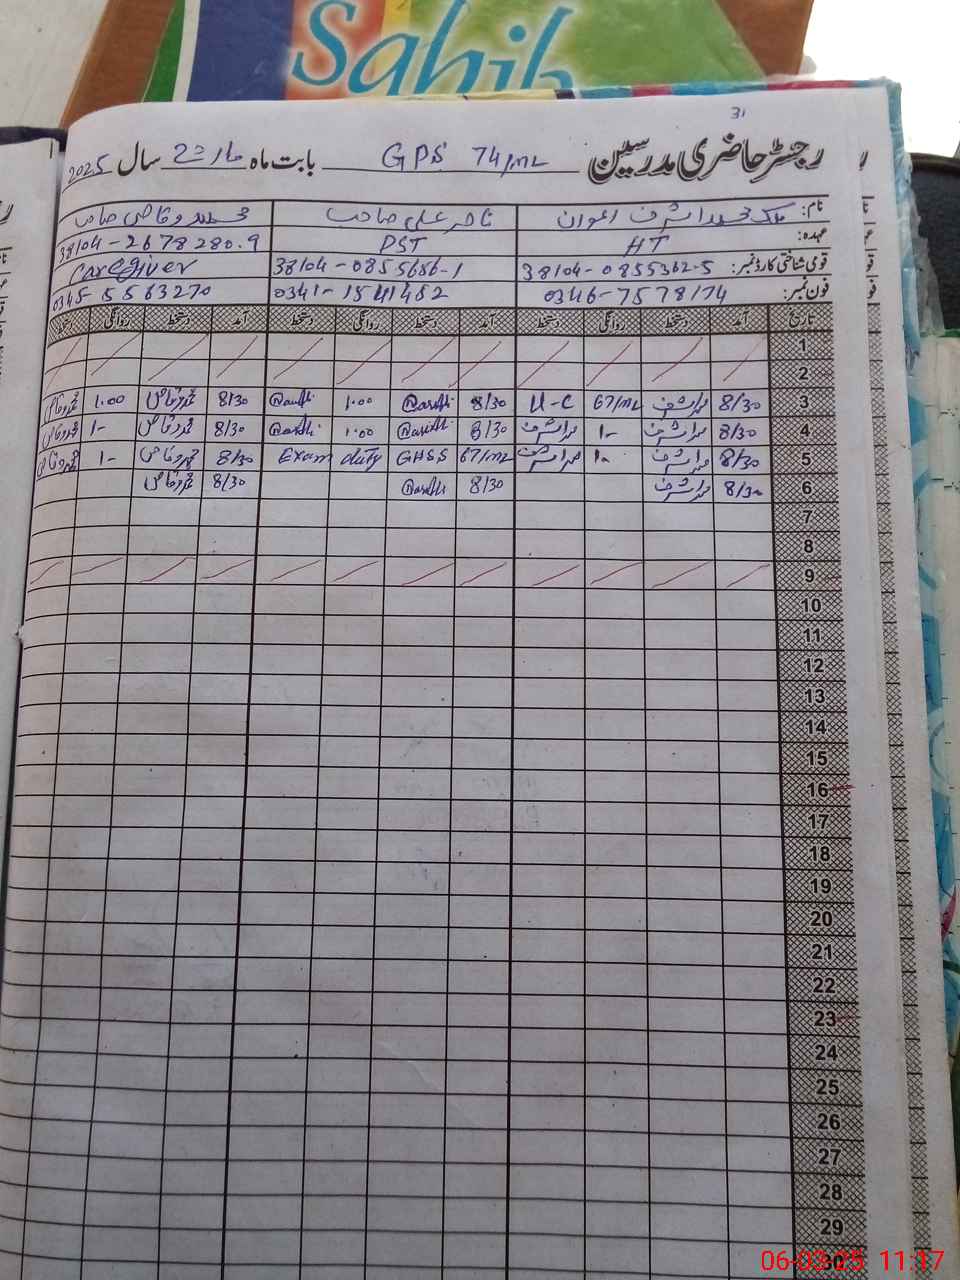 Sahib
31
رجسٹر حاضری مدرسین GPS 74/ML بابت ماہ مارچ 2 سال 2025
نام: ملک محمد اشرف اعوان ناصر علی صاحب محمد وقاص صاحب
عہدہ: HT PST 38104-2678280.9
قومی شناختی کارڈ نمبر: 38104-0855362-5 38104-0855656-1 Caregiver
فون نمبر: 0346-7578174 0341-1541482 0345-5563270
تاریخ آمد دستخط روانگی دستخط آمد دستخط روانگی دستخط آمد دستخط روانگی دستخط
1
2
3 8/30 محمد اشرف 67/ML U-C 8/30 1.00 8/30 محمد وقاص 1.00 محمد وقاص
4 8/30 محمد اشرف 1- محمد اشرف 8/30 1.00 8/30 محمد وقاص 1- محمد وقاص
5 8/30 محمد اشرف 1- محمد اشرف 67/ML GHSS duty Exam 8/30 محمد وقاص 1- محمد وقاص
6 8/30 محمد اشرف 8/30 8/30 محمد وقاص
7
8
9
10
11
12
13
14
15
16
17
18
19
20
21
22
23
24
25
26
27
28
29
30
06-03-25 11:17